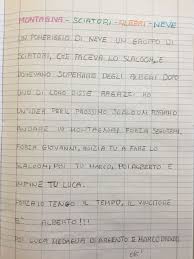 MONTAGNA - SCIATORI - ALBERI - NEVE
UN POMERIGGIO DI NEVE UN GRUPPO DI
SCIATORI, CHE FACEVA LO SLALOOM, E
DOVEVANO SUPERARE DEGLI ALBERI DOPO
UNO DI LORO DISSE RAGAZZI: HO
UN'IDEA PER IL PROSSIMO SLALOOM POSSIAMO
ANDARE IN MONTAGNA, FORZA SEGUITEMI,
FORZA GIOVANNI, INIZIA TU A FARE LO
SLALOOM, POI TU MARCO, POI ALBERTO E
INFINE TU LUCA.
FORZA IO TENGO IL TEMPO, IL VINCITORE
È ALBERTO!!!
POI LUCA MEDAGLIA DI ARGENTO E MARCO BRONZO